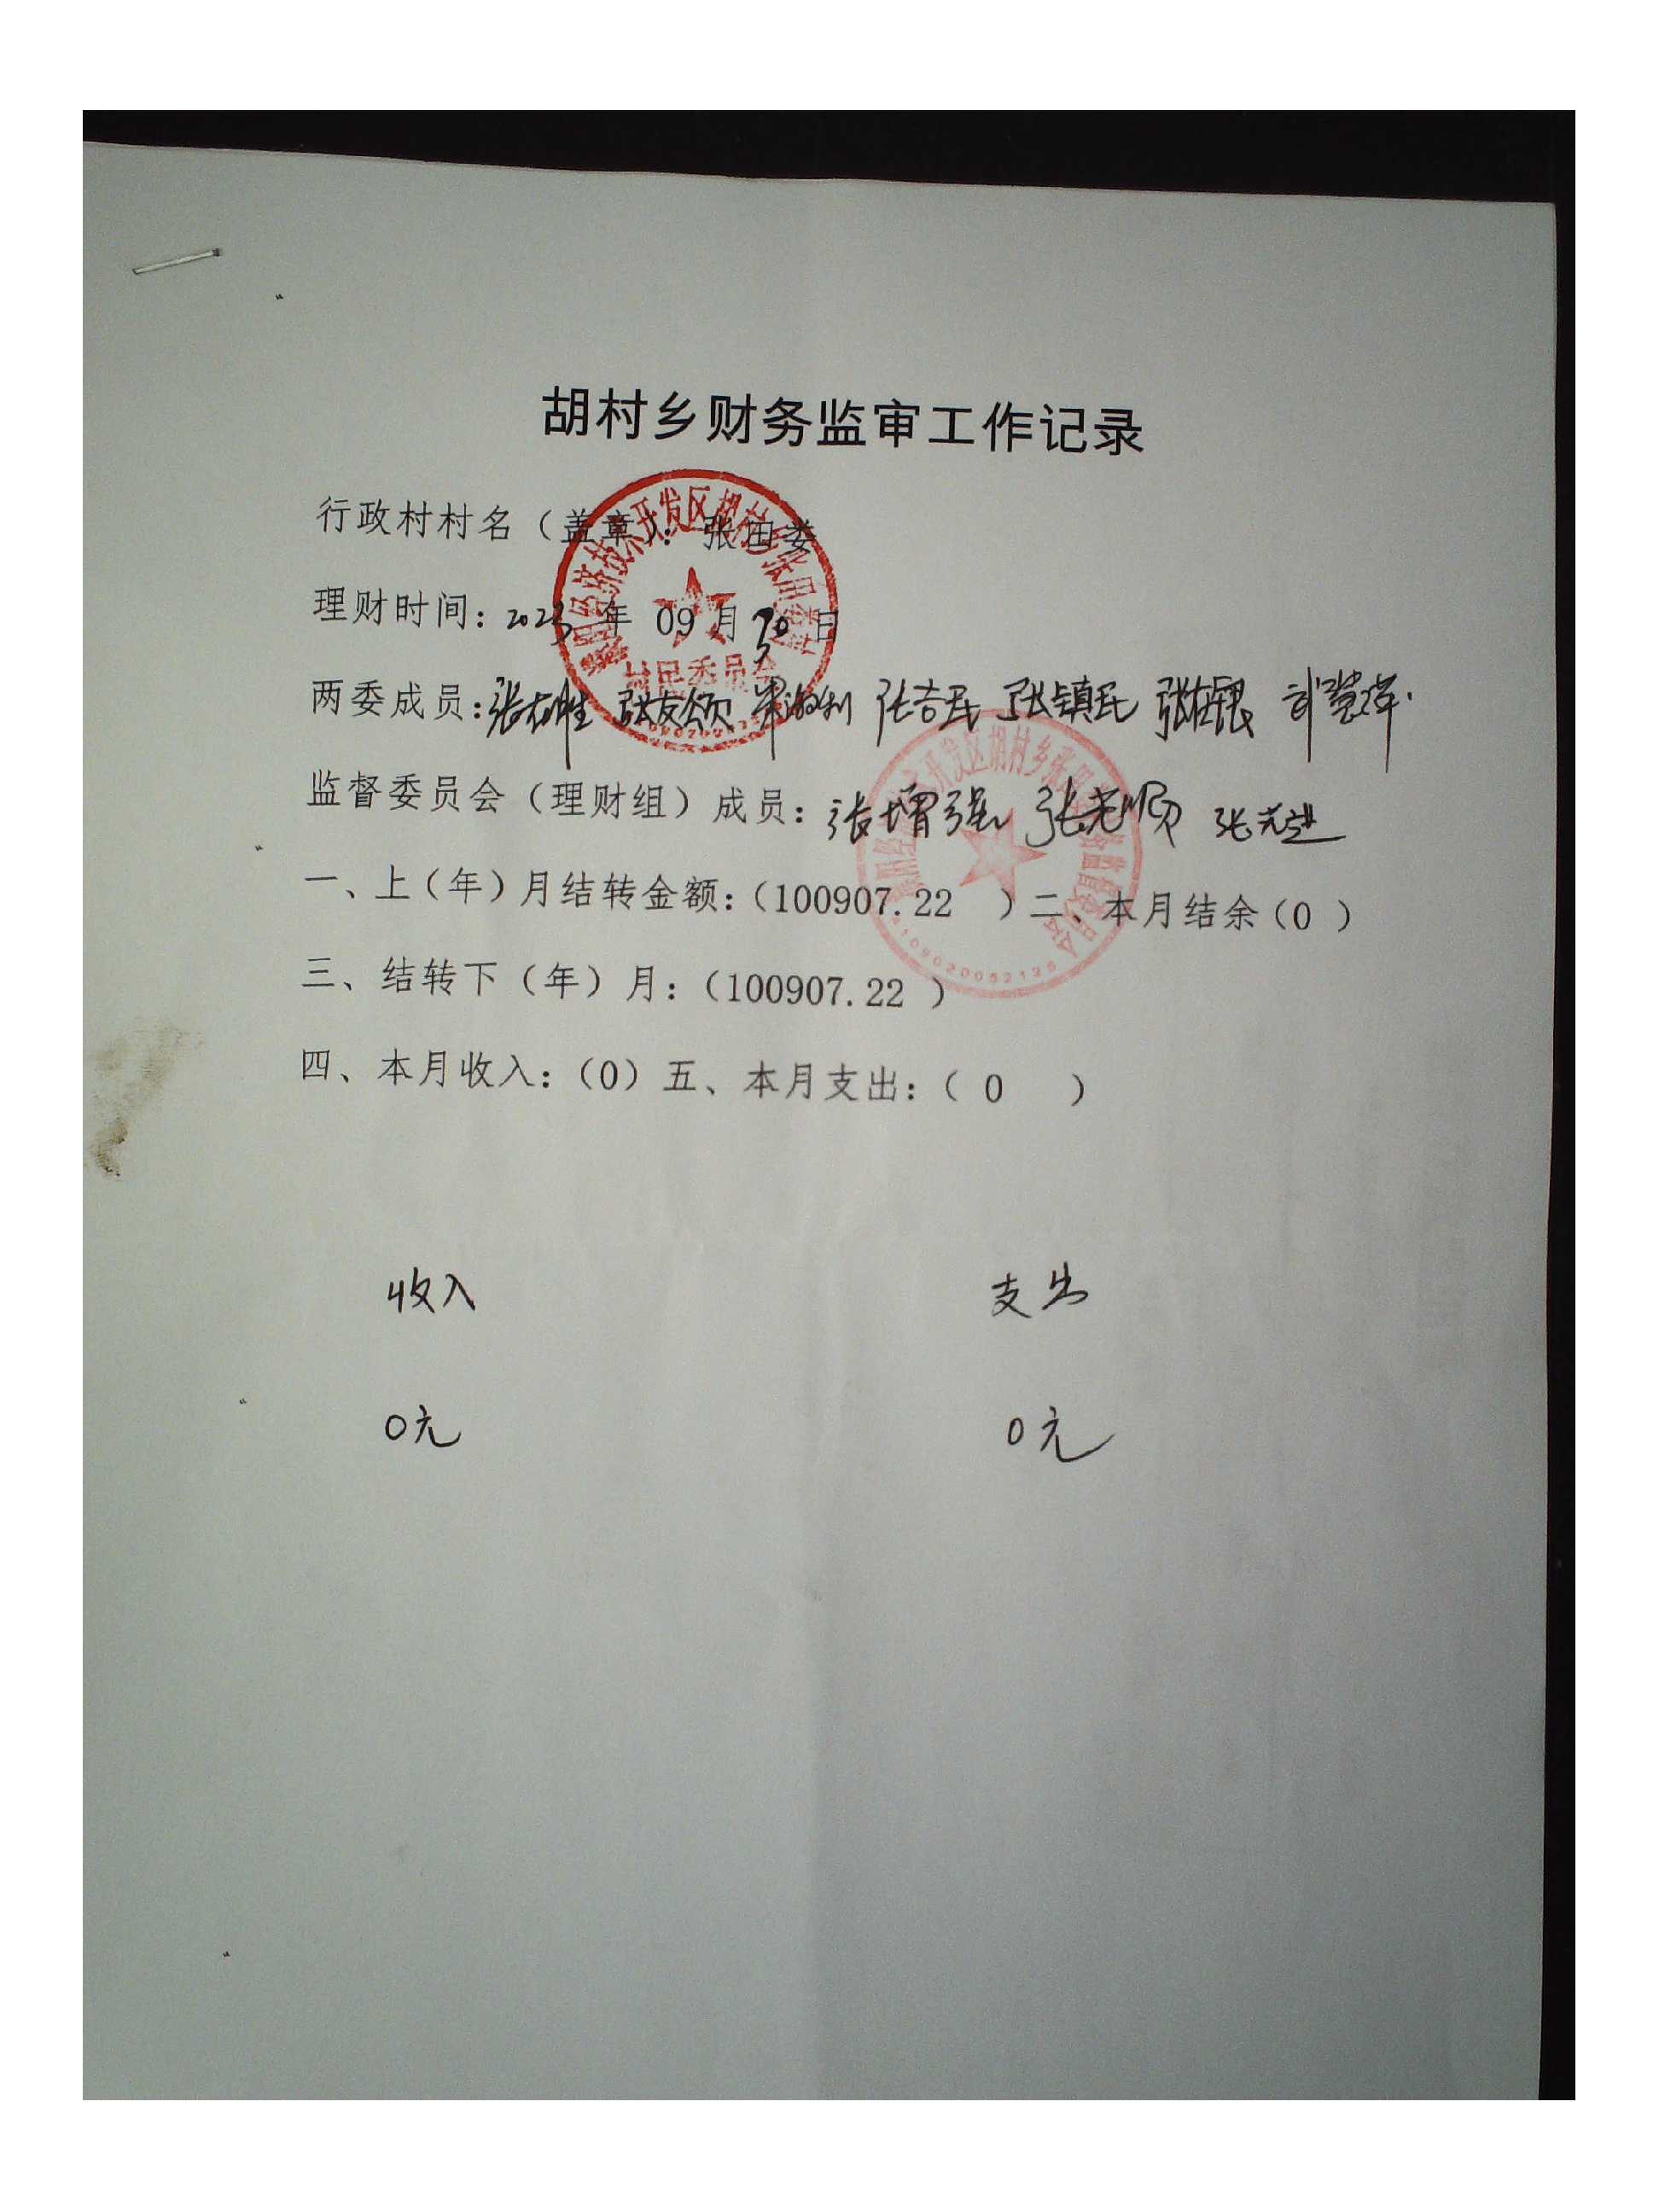 胡村乡财务监审工作记录
行政村村名（盖章）：张田娄
理财时间：2023年09月30日
两委成员：张友胜 张发颂 张吉民 张镇民 张在银
监督委员会（理财组）成员：张增强 张老顺 张光进
一、上（年）月结转金额：（100907.22 ）二、本月结余（0 ）
三、结转下（年）月：（100907.22 ）
四、本月收入：（0）五、本月支出：（ 0 ）
收入 支出
0元 0元
开发区胡村乡张田娄村
村民委员会